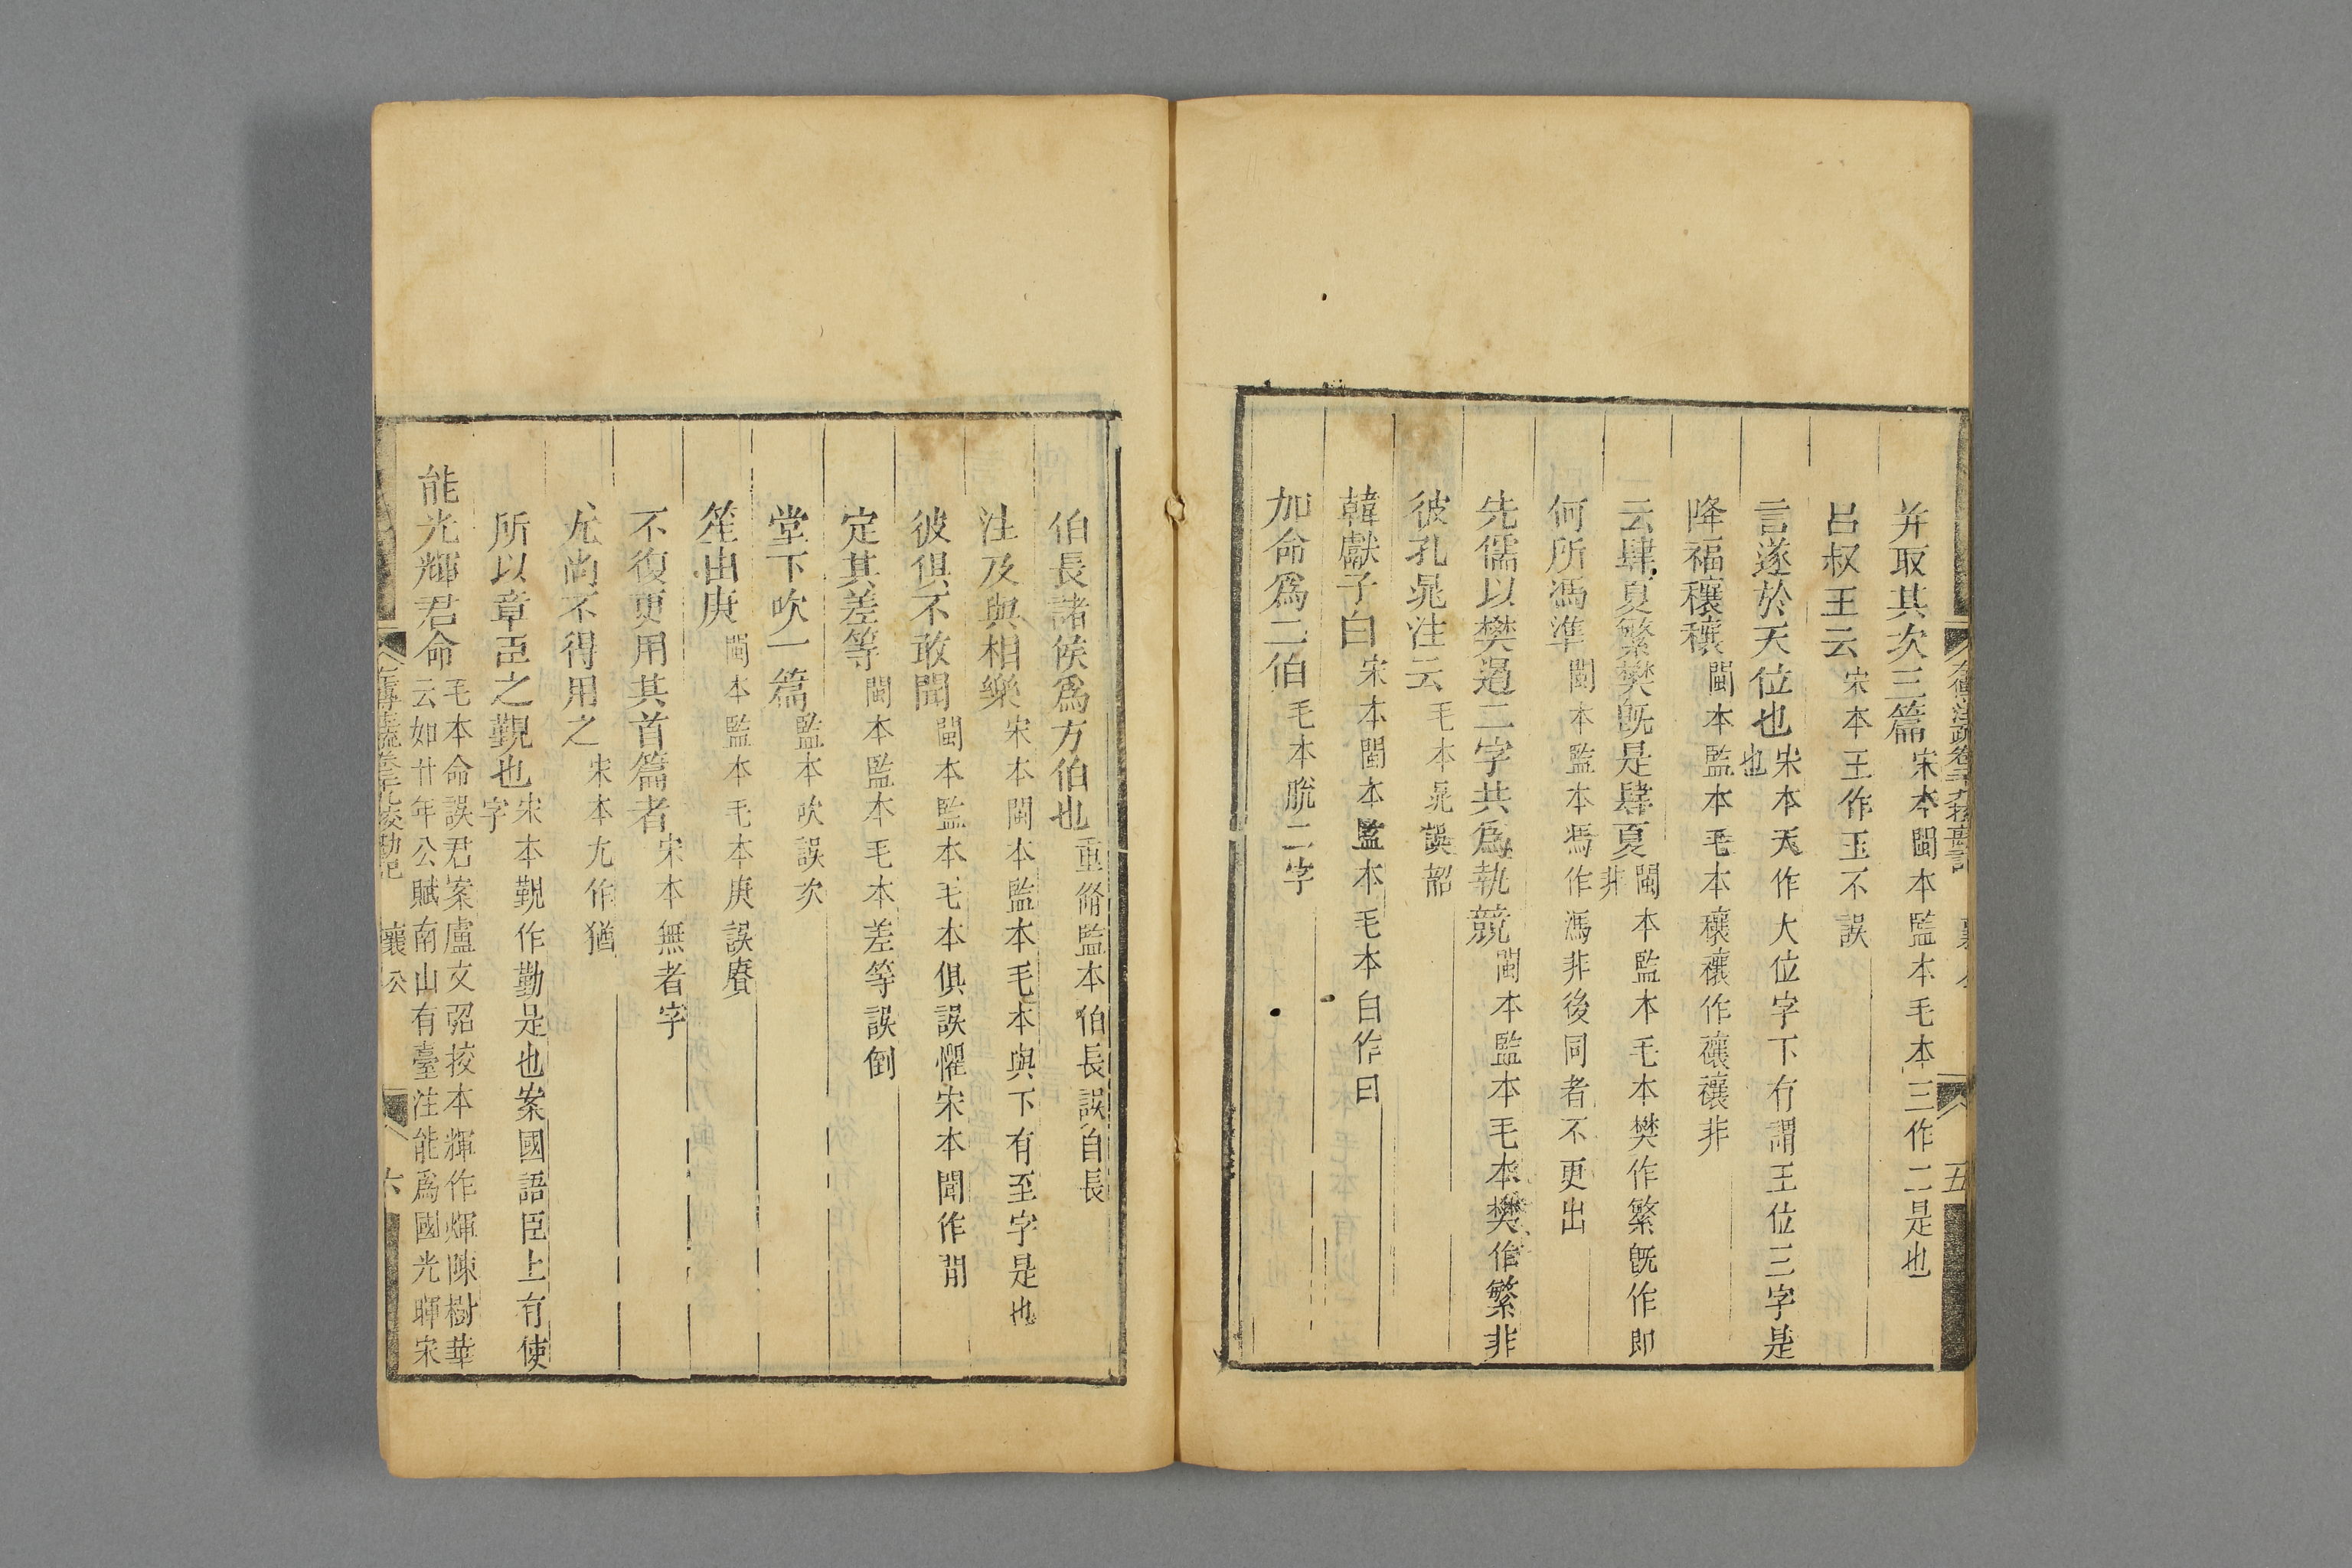 并取其次三篇宋本閩本監本毛本三作二是也
呂叔王云宋本王作玉不誤
言遂於天位也宋本天作大位字下有謂王位三字是也
降福穰穰閩本監本毛本穰穰作禳禳非
云肆夏繁樊既是肆夏閩本監本毛本樊作繁既作即非
何所馮準閩本監本馮作馮非後同者不更出
先儒以樊遏二字共爲執競閩本監本毛本樊作繁非
彼孔晁注云毛本晁誤韶
韓獻子白宋本閩本監本毛本白作曰
加命爲二伯毛本脫二字
五
伯長諸侯爲方伯也重脩監本伯長誤自長
注及與相樂宋本閩本監本毛本與下有至字是也
彼俱不敢聞閩本監本毛本俱誤懼宋本聞作閒
定其差等閩本監本毛本差等誤倒
堂下吹一篇監本吹誤次
笙由庚閩本監本毛本庚誤賡
不復更用其首篇者宋本無者字
尤尚不得用之宋本尤作猶
所以章臣之覲也宋本覲作勤是也案國語臣上有使字
能光輝君命毛本命誤君案盧文弨挍本輝作煇陳樹華云如廿年公賦南山有臺注能爲國光暉宋
襄公
六